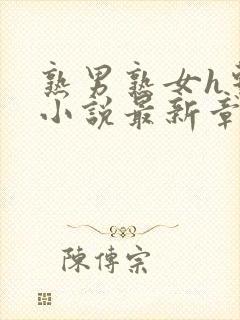 熟男熟女h
小說最新章
陳傳宗